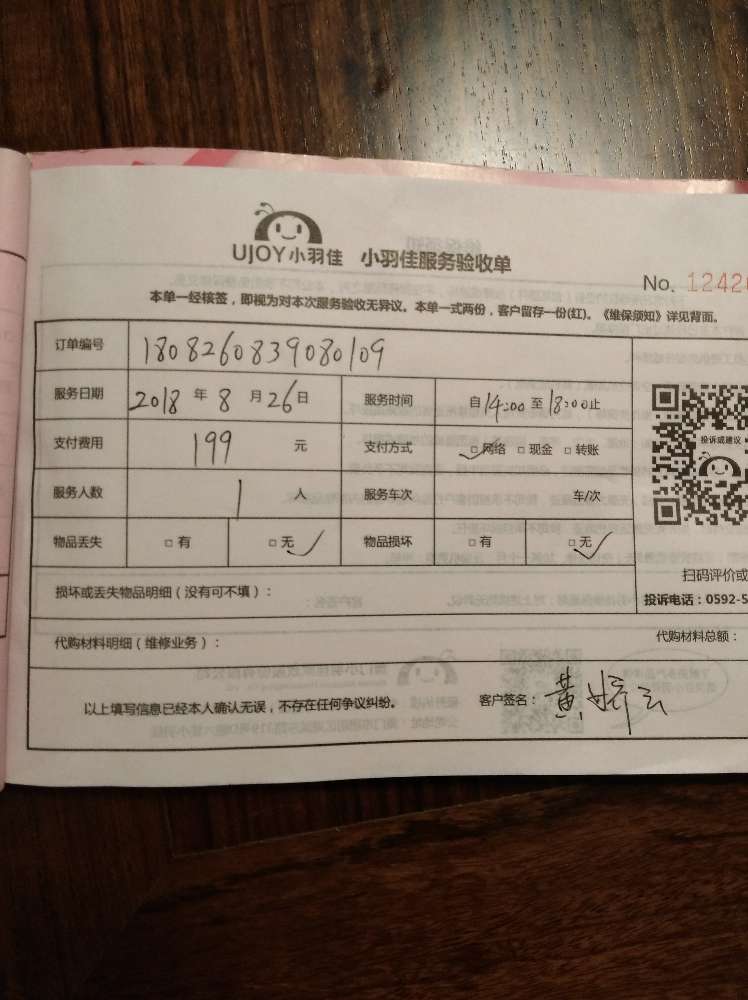 UJOY小羽佳 小羽佳服务验收单
No. 1242
本单一经核签，即视为对本次服务验收无异议。本单一式两份，客户留存一份(红)。《维保须知》详见背面。
订单编号 1808260839080109
服务日期 2018 年 8 月 26 日 服务时间 自 14:00 至 18:00 止
支付费用 199 元 支付方式 ☑ 网络 □ 现金 □ 转账
投诉或建议
服务人数 1 人 服务车次 车/次
物品丢失 □ 有 □ 无 ✓ 物品损坏 □ 有 □ 无 ✓
扫码评价或
损坏或丢失物品明细（没有可不填）：
投诉电话：0592-5
代购材料明细（维修业务）： 代购材料总额：
以上填写信息已经本人确认无误，不存在任何争议纠纷。 客户签名： 黄婷云